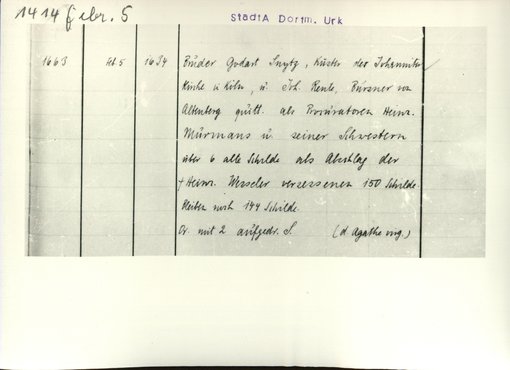 1414 Febr. 5
StadtA Dortm. Urk
1663 Feb. 5 1634 Bruder Godart , Küster der Johanniter
Kirche u Köln, u. Joh. Rente, Bürsner von
Altenberg quitt. als Procuratoren Heinr.
Murmans u. seiner Schwestern
über 6 alte Schilde als Abschlag der
† Heinr. Wesseler versessenen 150 Schilde.
bleiben noch 144 Schilde.
Or. mit 2 aufgedr. S. (d. Agathe virg.)